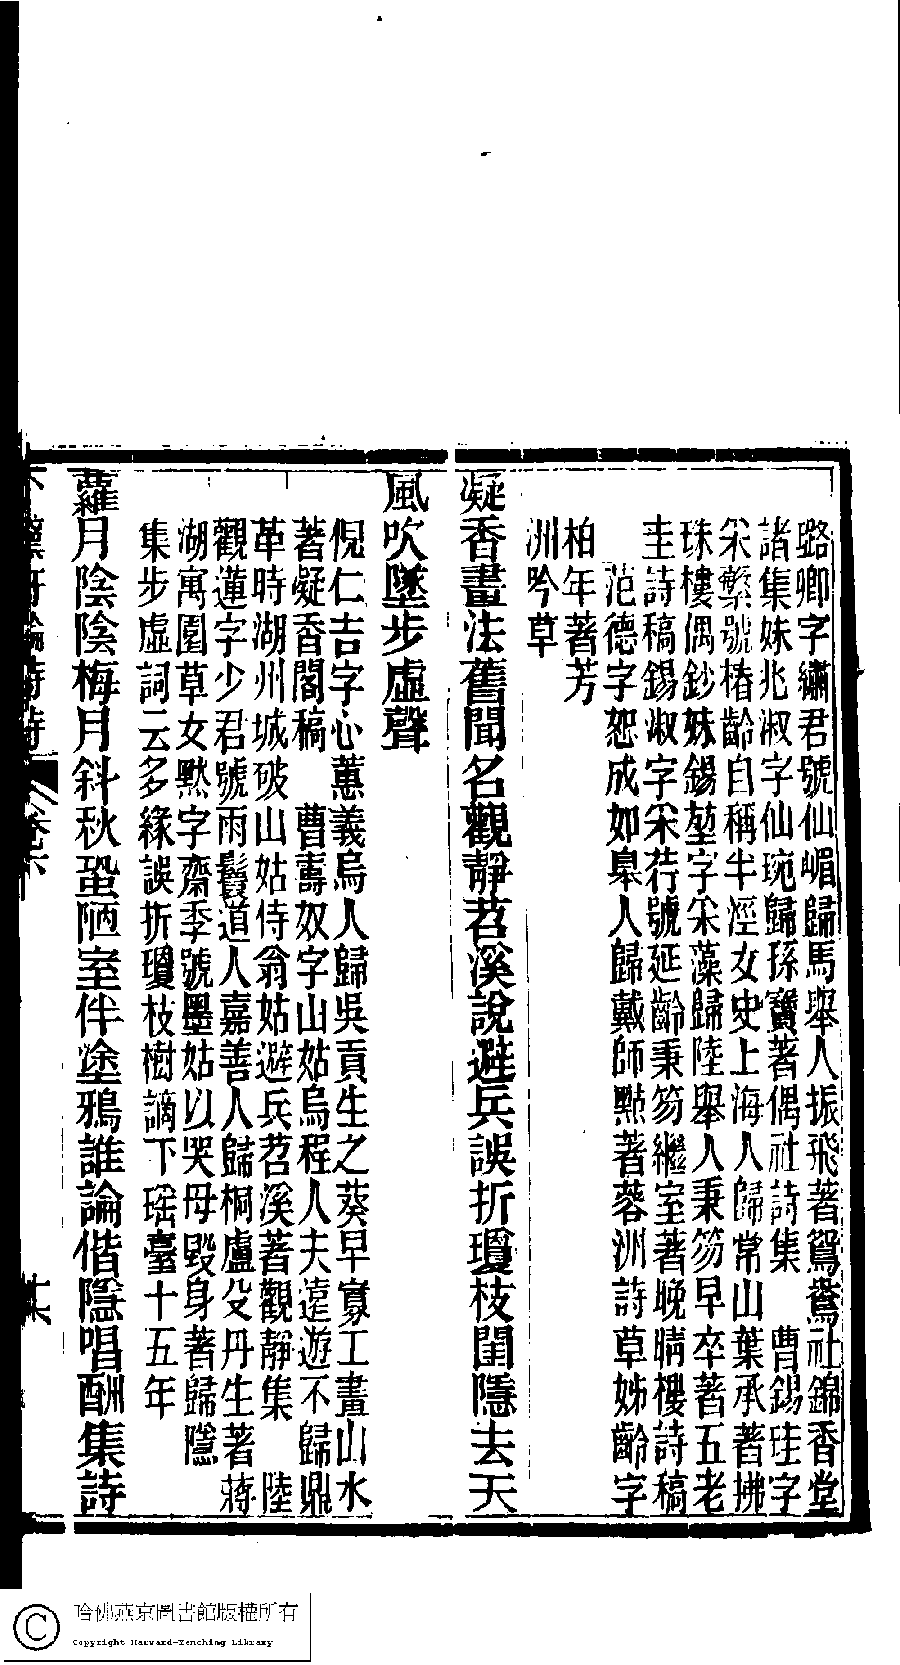 璐卿字繡君號仙嵋歸馬舉人振飛著鴛鴦社錦香堂
諸集妹兆淑字仙琬歸孫寶著偶社詩集　曹錫珪字
采蘩號椿齡自稱半涇女史上海人歸常山葉承著拂
珠樓偶鈔妹錫堃字采藻歸陸舉人秉笏早卒著五老
圭詩稿錫淑字采荇號延齡秉笏繼室著晚晴樓詩稿
范德字恕成如皋人歸戴師點著蓉洲詩草姊齡字
柏年著芳
洲吟草
凝香畫法舊聞名觀靜苕溪說避兵誤折瓊枝閨隱去天
風吹墜步虛聲
倪仁吉字心蕙義烏人歸吳貢生之葵早寡工畫山水
著凝香閣稿　曹壽奴字山姑烏程人夫遠遊不歸鼎
革時湖州城破山姑侍翁姑避兵苕溪著觀靜集　陸
觀蓮字少君號雨鬟道人嘉善人歸桐廬殳丹生著蔣
湖寓園草女默字齋季號墨姑以哭母毀身著歸隱
集步虛詞云多緣誤折瓊枝樹謫下瑤臺十五年
蘿月陰陰梅月斜秋蛩陋室伴塗鴉誰論偕隱唱酬集詩
卷六
哈佛燕京圖書館版權所有
Copyright Harvard-Yenching Library